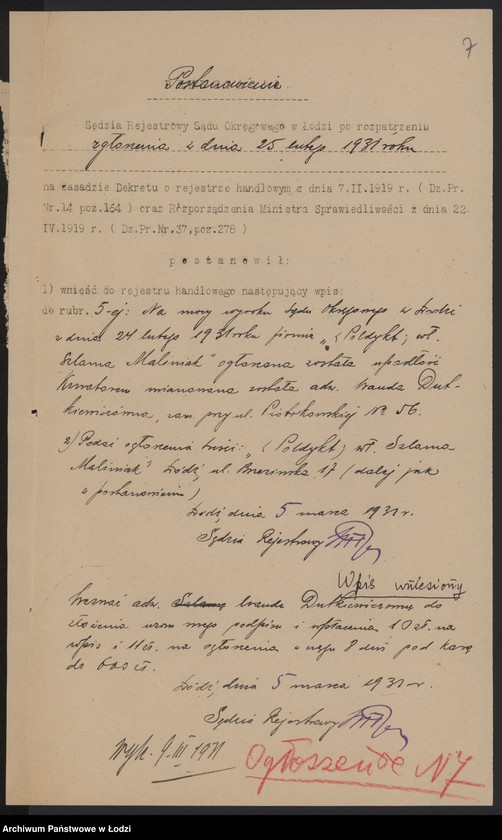 7
Postanowienie
Sędzia Rejestrowy Sądu Okręgowego w Łodzi po rozpatrzeniu
zgłoszenia z dnia 25 lutego 1931 roku
na zasadzie Dekretu o rejestrze handlowym z dnia 7.II.1919 r. ( Dz.Pr.
Nr.14 poz.164 ) oraz Rozporządzenia Ministra Sprawiedliwości z dnia 22
IV.1919 r. ( Dz.Pr.Nr.37,poz.278 )
postanowił:
1) wnieść do rejestru handlowego następujący wpis:
do rubr. 5-ej: Na mocy wyroku Sądu Okręgowego w Łodzi
z dnia 24 lutego 1931 roku firmie „(Poldykt) wł.
Szlama Maliniak" ogłoszona została upadłość
Kuratorem mianowana została adw. Wanda Dut-
kiewiczówna, zam. przy ul. Piotrkowskiej № 56.
2) Podać ogłoszenia treści: „(Poldykt) wł. Szlama
Maliniak" Łódź, ul. Brzezińska 17 (dalej jak
w postanowieniu)
Łódź, dnia 5 marca 1931 r.
Sędzia Rejestrowy
Wpis wniesiony
Wezwać adw. Szlamę Wandę Dutkiewiczównę do
złożenia wzoru swego podpisu i wpłacenia 10 zł. na
wpis i 11 zł. na ogłoszenia w ciągu 8 dni pod karą
do 600 zł.
Łódź, dnia 5 marca 1931 r.
Sędzia Rejestrowy
Wyk. 9.III 1931
Ogłoszenie N 7
Archiwum Państwowe w Łodzi